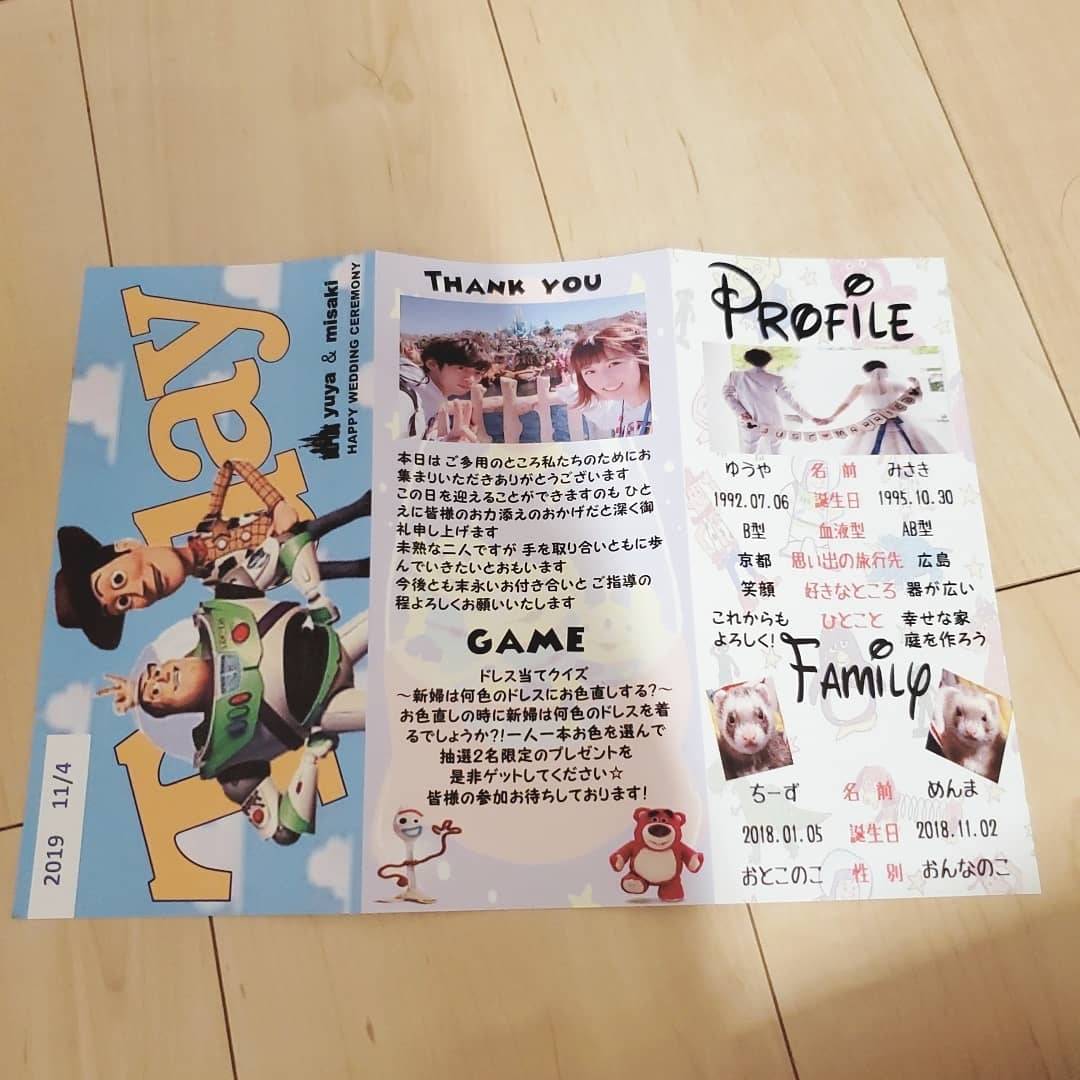 Today
yuya & misaki
HAPPY WEDDING CEREMONY
2019 11/4
THANK YOU
本日は ご多用のところ私たちのためにお
集まりいただきありがとうございます
この日を迎えることができますのも ひと
えに皆様のお力添えのおかげだと深く御
礼申し上げます
未熟な二人ですが 手を取り合いともに歩
んでいきたいとおもいます
今後とも末永いお付き合いと ご指導の
程よろしくお願いいたします
GAME
ドレス当てクイズ
～新婦は何色のドレスにお色直しする?～
お色直しの時に新婦は何色のドレスを着
るでしょうか?!一人一本お色を選んで
抽選2名限定のプレゼントを
是非ゲットしてください☆
皆様の参加お待ちしております!
PROFILE
ゆうや 名前 みさき
1992.07.06 誕生日 1995.10.30
B型 血液型 AB型
京都 思い出の旅行先 広島
笑顔 好きなところ 器が広い
これからも ひとこと 幸せな家
よろしく! 庭を作ろう
FAMILY
ちーず 名前 めんま
2018.01.05 誕生日 2018.11.02
おとこのこ 性別 おんなのこ